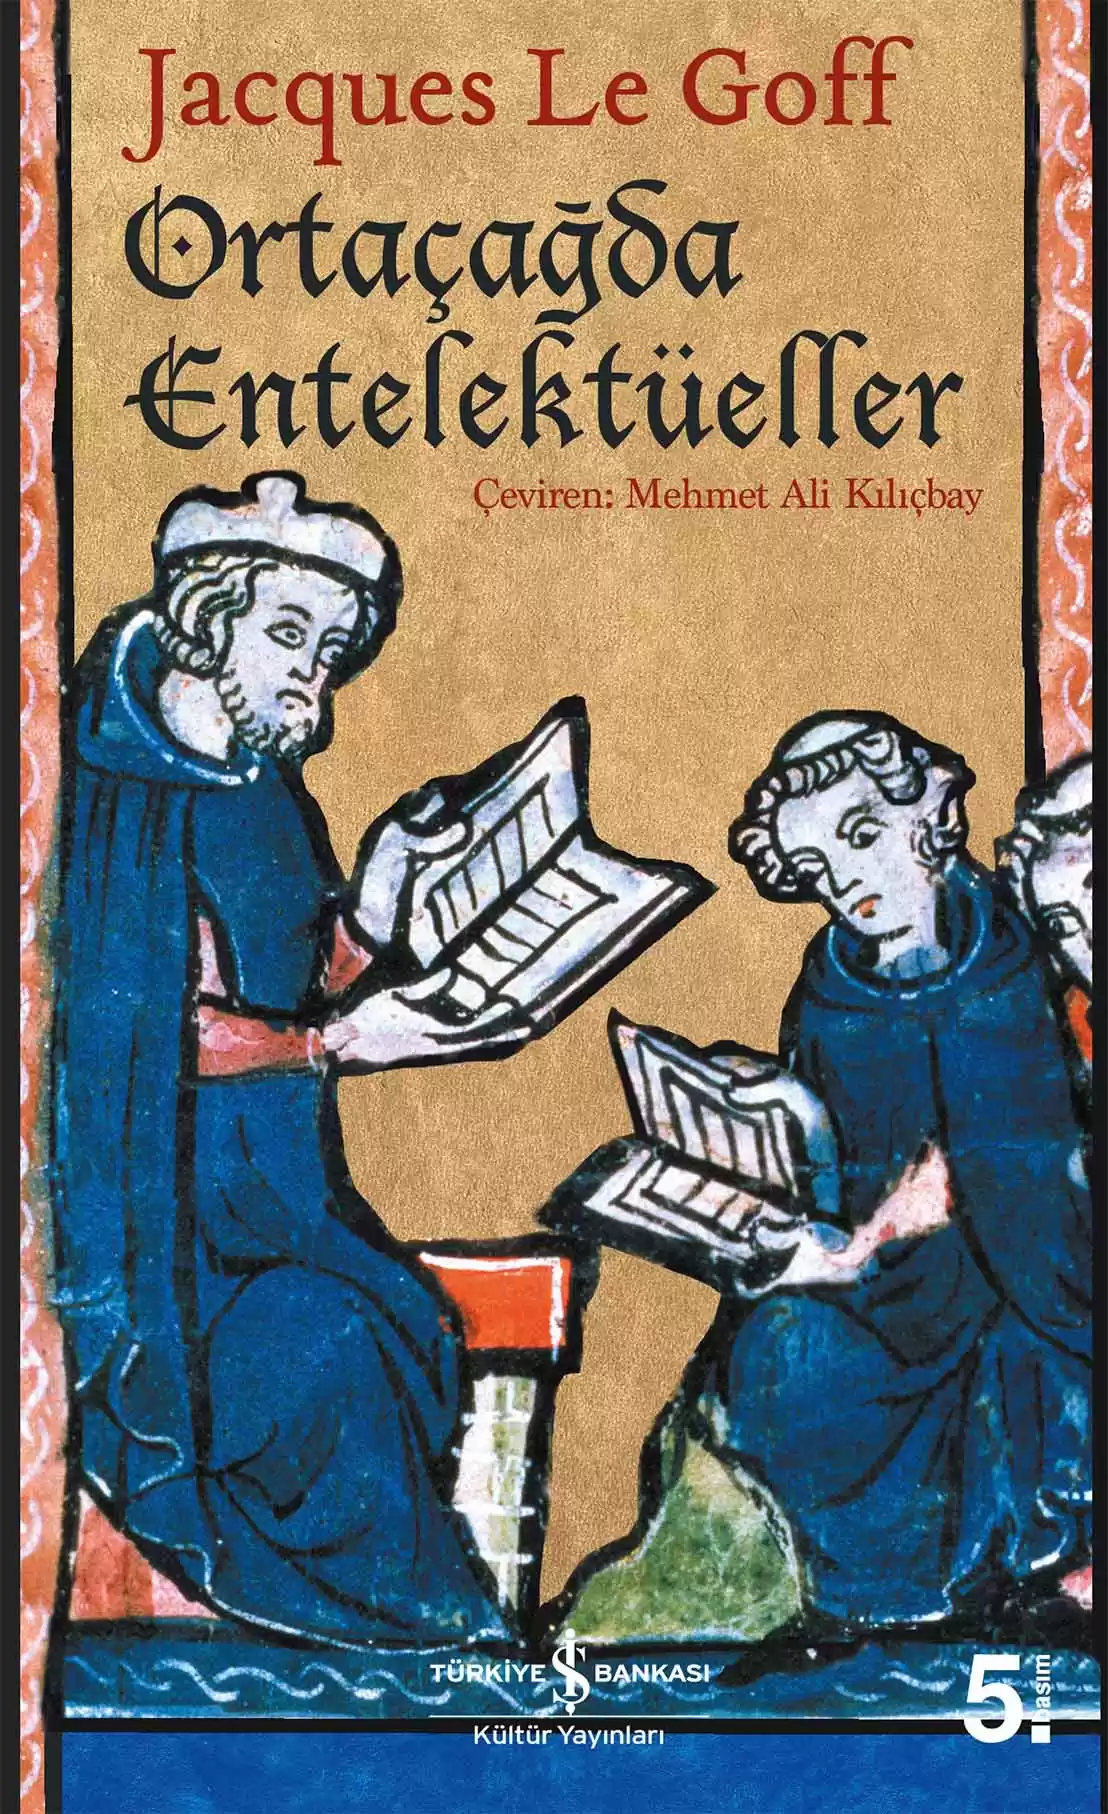 Jacques Le Goff
Ortaçağda
Entelektüeller
Çeviren: Mehmet Ali Kılıçbay
TÜRKİYE İŞ BANKASI
Kültür Yayınları
5.
basım